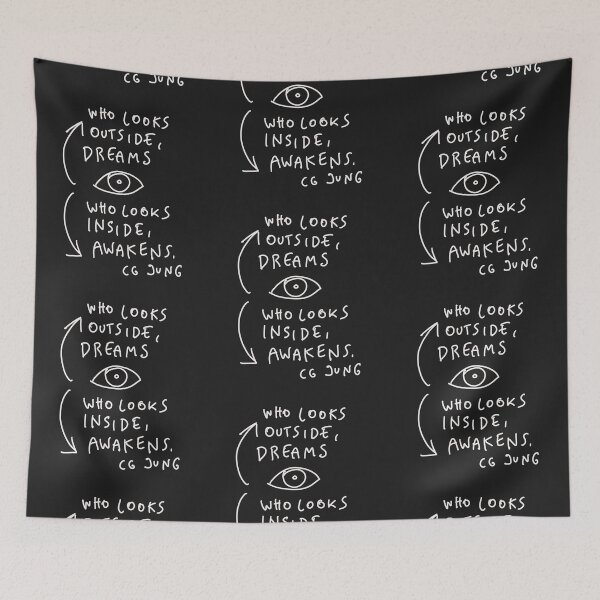 CG JUNG
WHO LOOKS
OUTSIDE,
DREAMS
WHO LOOKS
INSIDE,
AWAKENS.
CG JUNG
WHO LOOKS
OUTSIDE,
DREAMS
WHO LOOKS
INSIDE,
AWAKENS.
CG JUNG
WHO LOOKS
WHO LOOKS
INSIDE,
AWAKENS.
CG JUNG
WHO LOOKS
OUTSIDE,
DREAMS
WHO LOOKS
INSIDE,
AWAKENS.
CG JUNG
WHO LOOKS
OUTSIDE,
DREAMS
WHO LOOKS
INSIDE
CG JUNG
WHO LOOKS
OUTSIDE,
DREAMS
WHO LOOKS
INSIDE,
AWAKENS.
CG JUNG
WHO LOOKS
OUTSIDE,
DREAMS
WHO LOOKS
INSIDE,
AWAKENS.
CG JUNG
WHO LOOKS